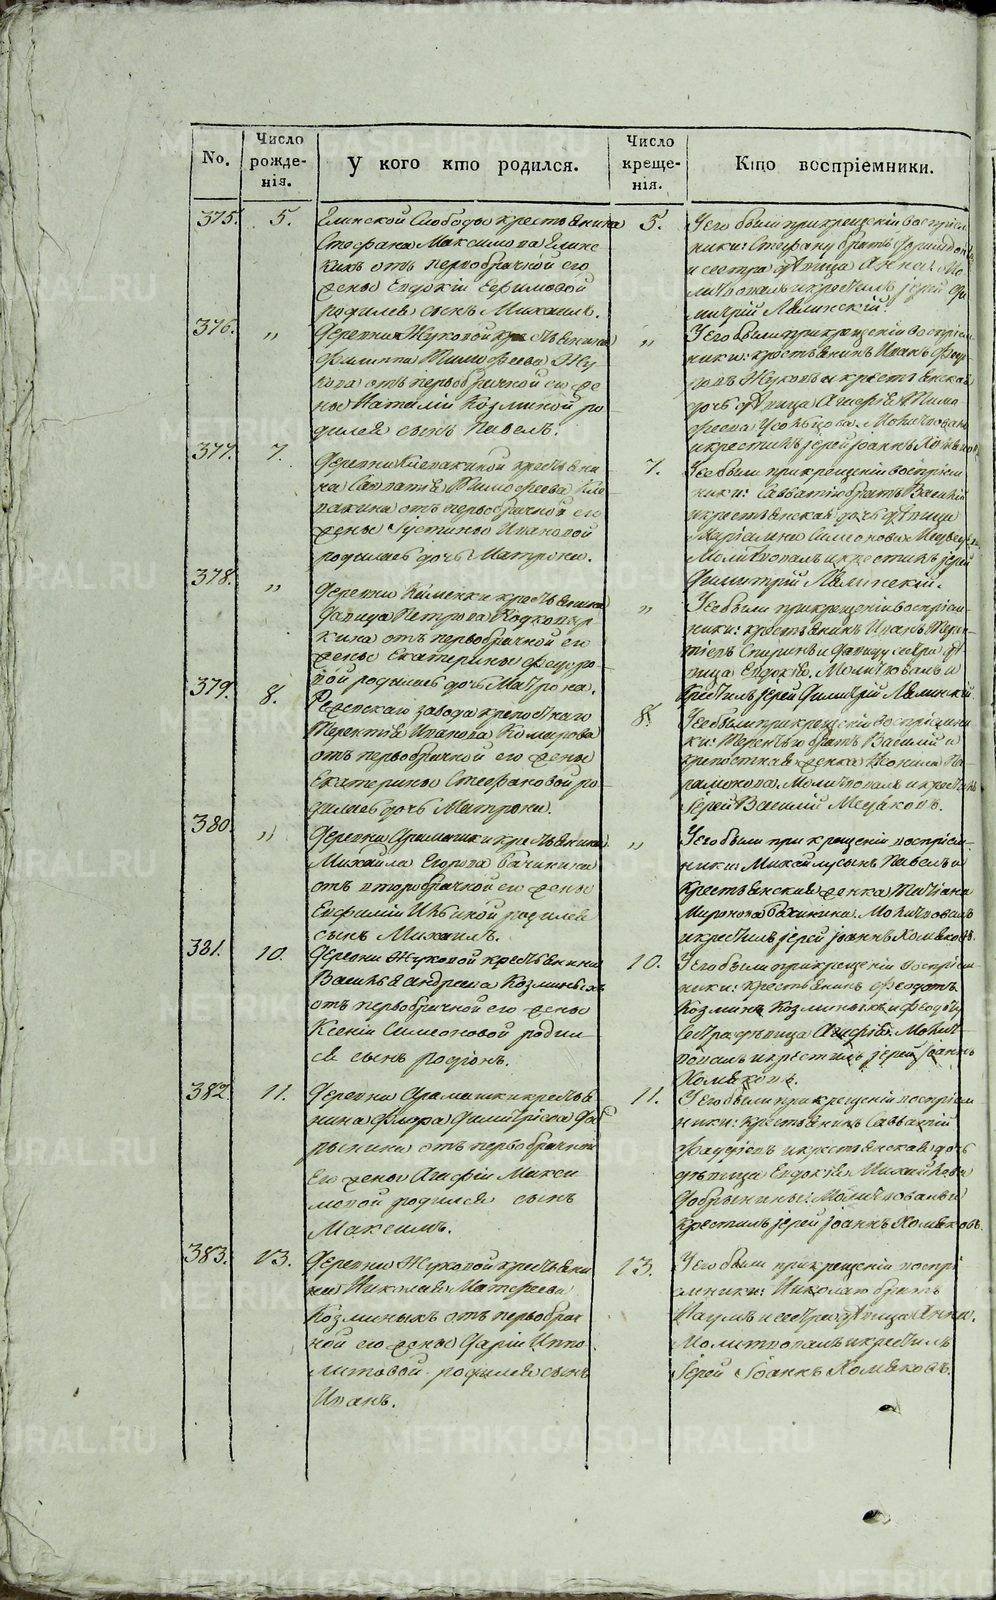 No.
Число рожде-нія.
У кого кто родился.
Число креще-нія.
Кто воспріемники.
375.
5.
Слободы крестьянина
Стефана Максимова
жены Евдокіи Ефимовой
родился сынъ Михаилъ.
5.
У него были при крещеніи воспріем
ники: Стефану братъ
и сестра дѣвица Анна. Мо
литвовалъ и крестилъ іерей Ди
митрій Ляминскій.
376.
„
Деревни Жуковой крестьянина
Филиппа Тимофеева Жу
кова отъ первобрачной его же
ны Наталіи Козминой ро
дился сынъ Павелъ.
„
У него были при крещеніи воспріем
ники: крестьянинъ Иванъ
Жуковъ и крестьянская
дочь дѣвица Агафія Тимо
феева Молитвовалъ
и крестилъ іерей Іоаннъ Хомяковъ.
377.
7.
Деревни Клепакиной крестьяни
на Савватія Тимофеева Кле
пакина отъ первобрачной его
жены Іустиньи Ивановой
родилась дочь Матрона.
7.
У нее были при крещеніи воспріем
ники: Савватію братъ Василій
и крестьянская дочь дѣвица
Маріамна Симеонова
Молитвовалъ и крестилъ іерей
Димитрій Ляминскій.
378.
„
Деревни крестьянина
Давида Петрова
кина отъ первобрачной его
жены Екатерины Федоро
вой родилась дочь Матрона.
„
У нее были при крещеніи воспріем
ники: крестьянинъ Иванъ Терен
тіевъ и Давиду сестра дѣ
вица Евдокія. Молитвовалъ и
крестилъ іерей Димитрій Ляминскій.
379.
8.
Режевскаго завода крепостнаго
Терентія Иванова Комарова
отъ первобрачной его жены
Екатерины Стефановой ро
дилась дочь Матрона.
8.
У нее были при крещеніи воспріемни
ки: Терентію братъ Василій и
крепостная женка
Молитвовалъ и крестилъ
іерей Василій
380.
„
Деревни Арамашки крестьянина
Михайла Егорова Бачинина
отъ второбрачной его жены
Евфиміи Ильиной родился
сынъ Михаилъ.
„
У него были при крещеніи воспріем-
ники: Михайлу сынъ Павелъ и
крестьянская женка Татіана
Миронова Бачинина. Молитвовалъ
и крестилъ іерей Іоаннъ Хомяковъ.
381.
10.
Деревни Жуковой крестьянина
Василья Андреева Козминыхъ
отъ первобрачной его жены
Ксеніи Симеоновой родил
ся сынъ Родіонъ.
10.
У него были при крещеніи воспріем
ники: крестьянинъ Феодотъ
Козминъ Козминыхъ и Феодоту
сестра дѣвица Агафія. Молит
вовалъ и крестилъ іерей Іоаннъ
Хомяковъ.
382.
11.
Деревни Арамашки крестья
нина Флора Димитріева Доб
рынина отъ первобрачной
его жены Агафіи Макси
мовой родился сынъ
Максимъ.
11.
У него были при крещеніи воспріем
ники: крестьянинъ Савватій
Фаддеевъ и крестьянская дочь
дѣвица Евдокія Михайлова
Добрынины. Молитвовалъ и
крестилъ іерей Іоаннъ Хомяковъ.
383.
13.
Деревни Жуковой крестьяни
на Николая Матфеева
Козминыхъ отъ первобрач
ной его жены Даріи Иппо
литовой родился сынъ
Иванъ.
13.
У него были при крещеніи воспрі
емники: Николаю братъ
Наумъ и сестра дѣвица Анна.
Молитвовалъ и крестилъ
Іерей Іоаннъ Хомяковъ.
METRIKI.GASO-URAL.RU